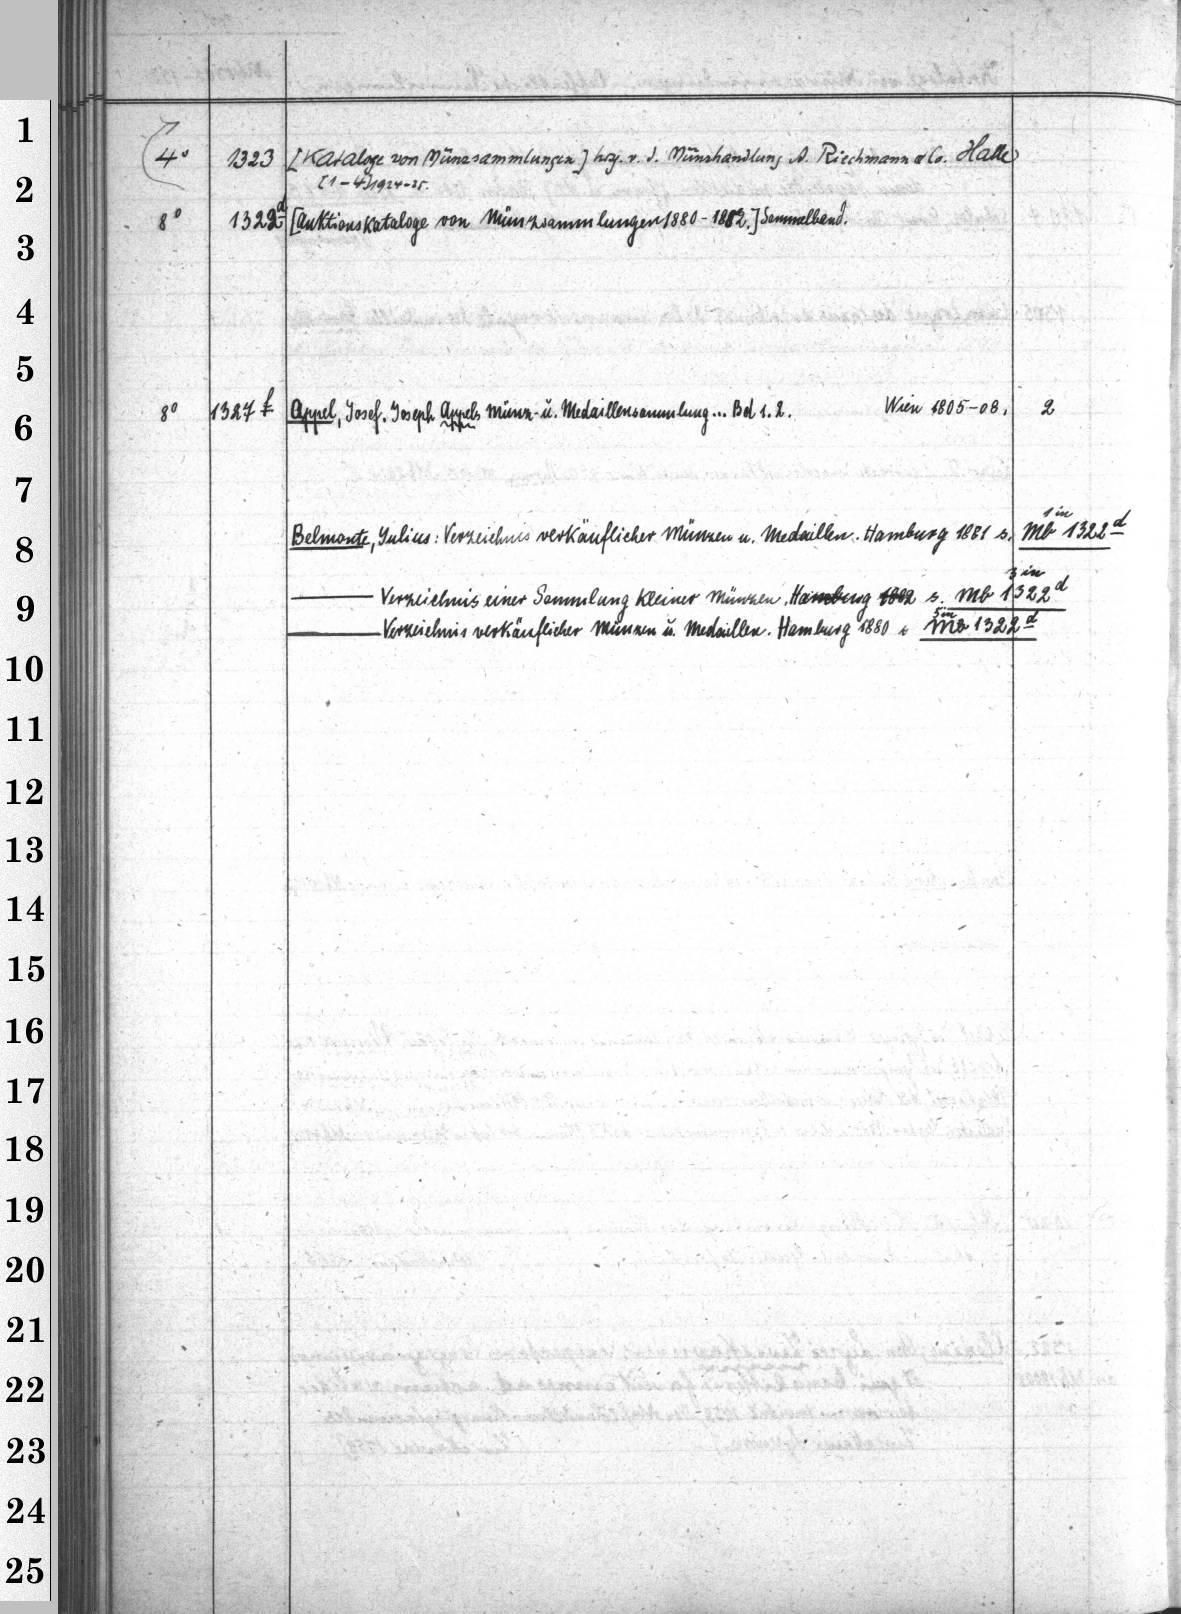 1
4° 1323 [Kataloge von Münzsammlungen] hrg. v. d. Münzhandlung A. Riechmann & Co. Halle
[1-4] 1924-25.
2
8° 1322d [Auktionskataloge von Münzsammlungen 1880-1882.] Sammelband.
3
4
5
8° 1327f Appel, Josef. Joseph Appels Münz- u. Medaillensammlung... Bd 1. 2. Wien 1805-08. 2
6
7
1 in
Belmonte, Julius: Verzeichnis verkäuflicher Münzen u. Medaillen. Hamburg 1881 s. Mb 1322d
8
3 in
Verzeichnis einer Sammlung kleiner Münzen. Hamburg 1882 s. Mb 1322d
9
5 in
Verzeichnis verkäuflicher Münzen u. Medaillen. Hamburg 1880 s. Mb 1322d
10
11
12
13
14
15
16
17
18
19
20
21
22
23
24
25